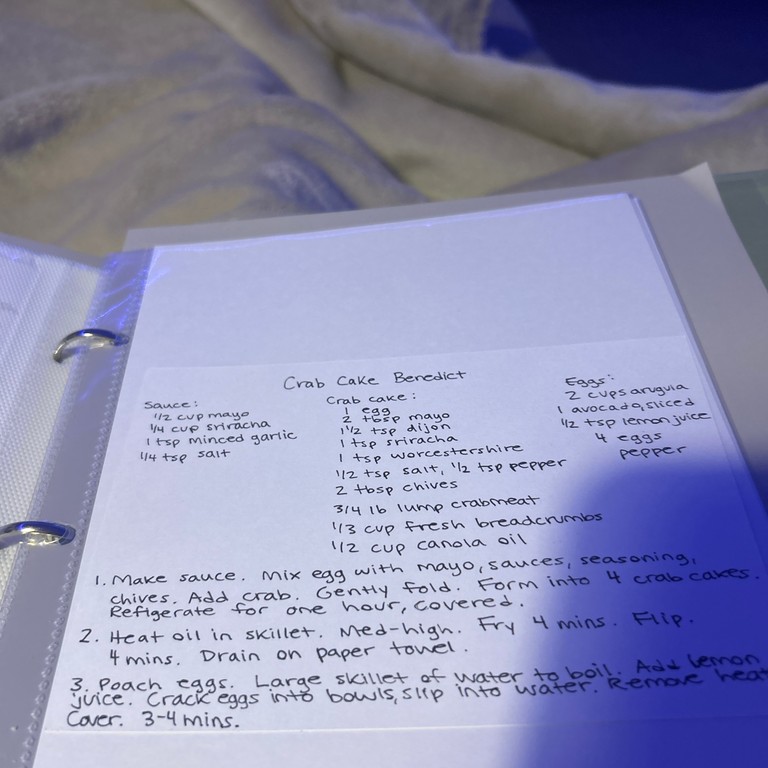 Crab Cake Benedict
Sauce:
1/2 cup mayo
1/4 cup sriracha
1 tsp minced garlic
1/4 tsp salt
Crab cake:
1 egg
2 tbsp mayo
1 1/2 tsp dijon
1 tsp sriracha
1 tsp worcestershire
1/2 tsp salt, 1/2 tsp pepper
2 tbsp chives
3/4 lb lump crabmeat
1/3 cup fresh breadcrumbs
1/2 cup canola oil
Eggs:
2 cups arugula
1 avocado, sliced
1/2 tsp lemon juice
4 eggs
pepper
1. Make sauce. Mix egg with mayo, sauces, seasoning,
chives. Add crab. Gently fold. Form into 4 crab cakes.
Refigerate for one hour, covered.
2. Heat oil in skillet. Med-high. Fry 4 mins. Flip.
4 mins. Drain on paper towel.
3. Poach eggs. Large skillet of water to boil. Add lemon
juice. Crack eggs into bowls, slip into water. Remove heat
Cover. 3-4 mins.